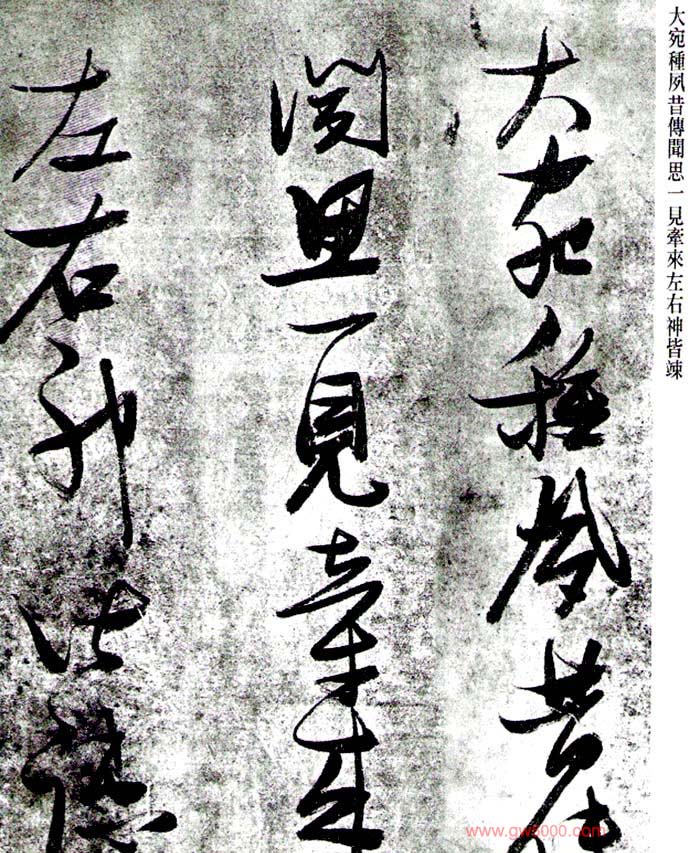 大宛種夙昔傳聞思一見牽來左右神皆竦
大宛種夙昔傳
聞思一見牽來
左右神皆竦
www.gw5000.com